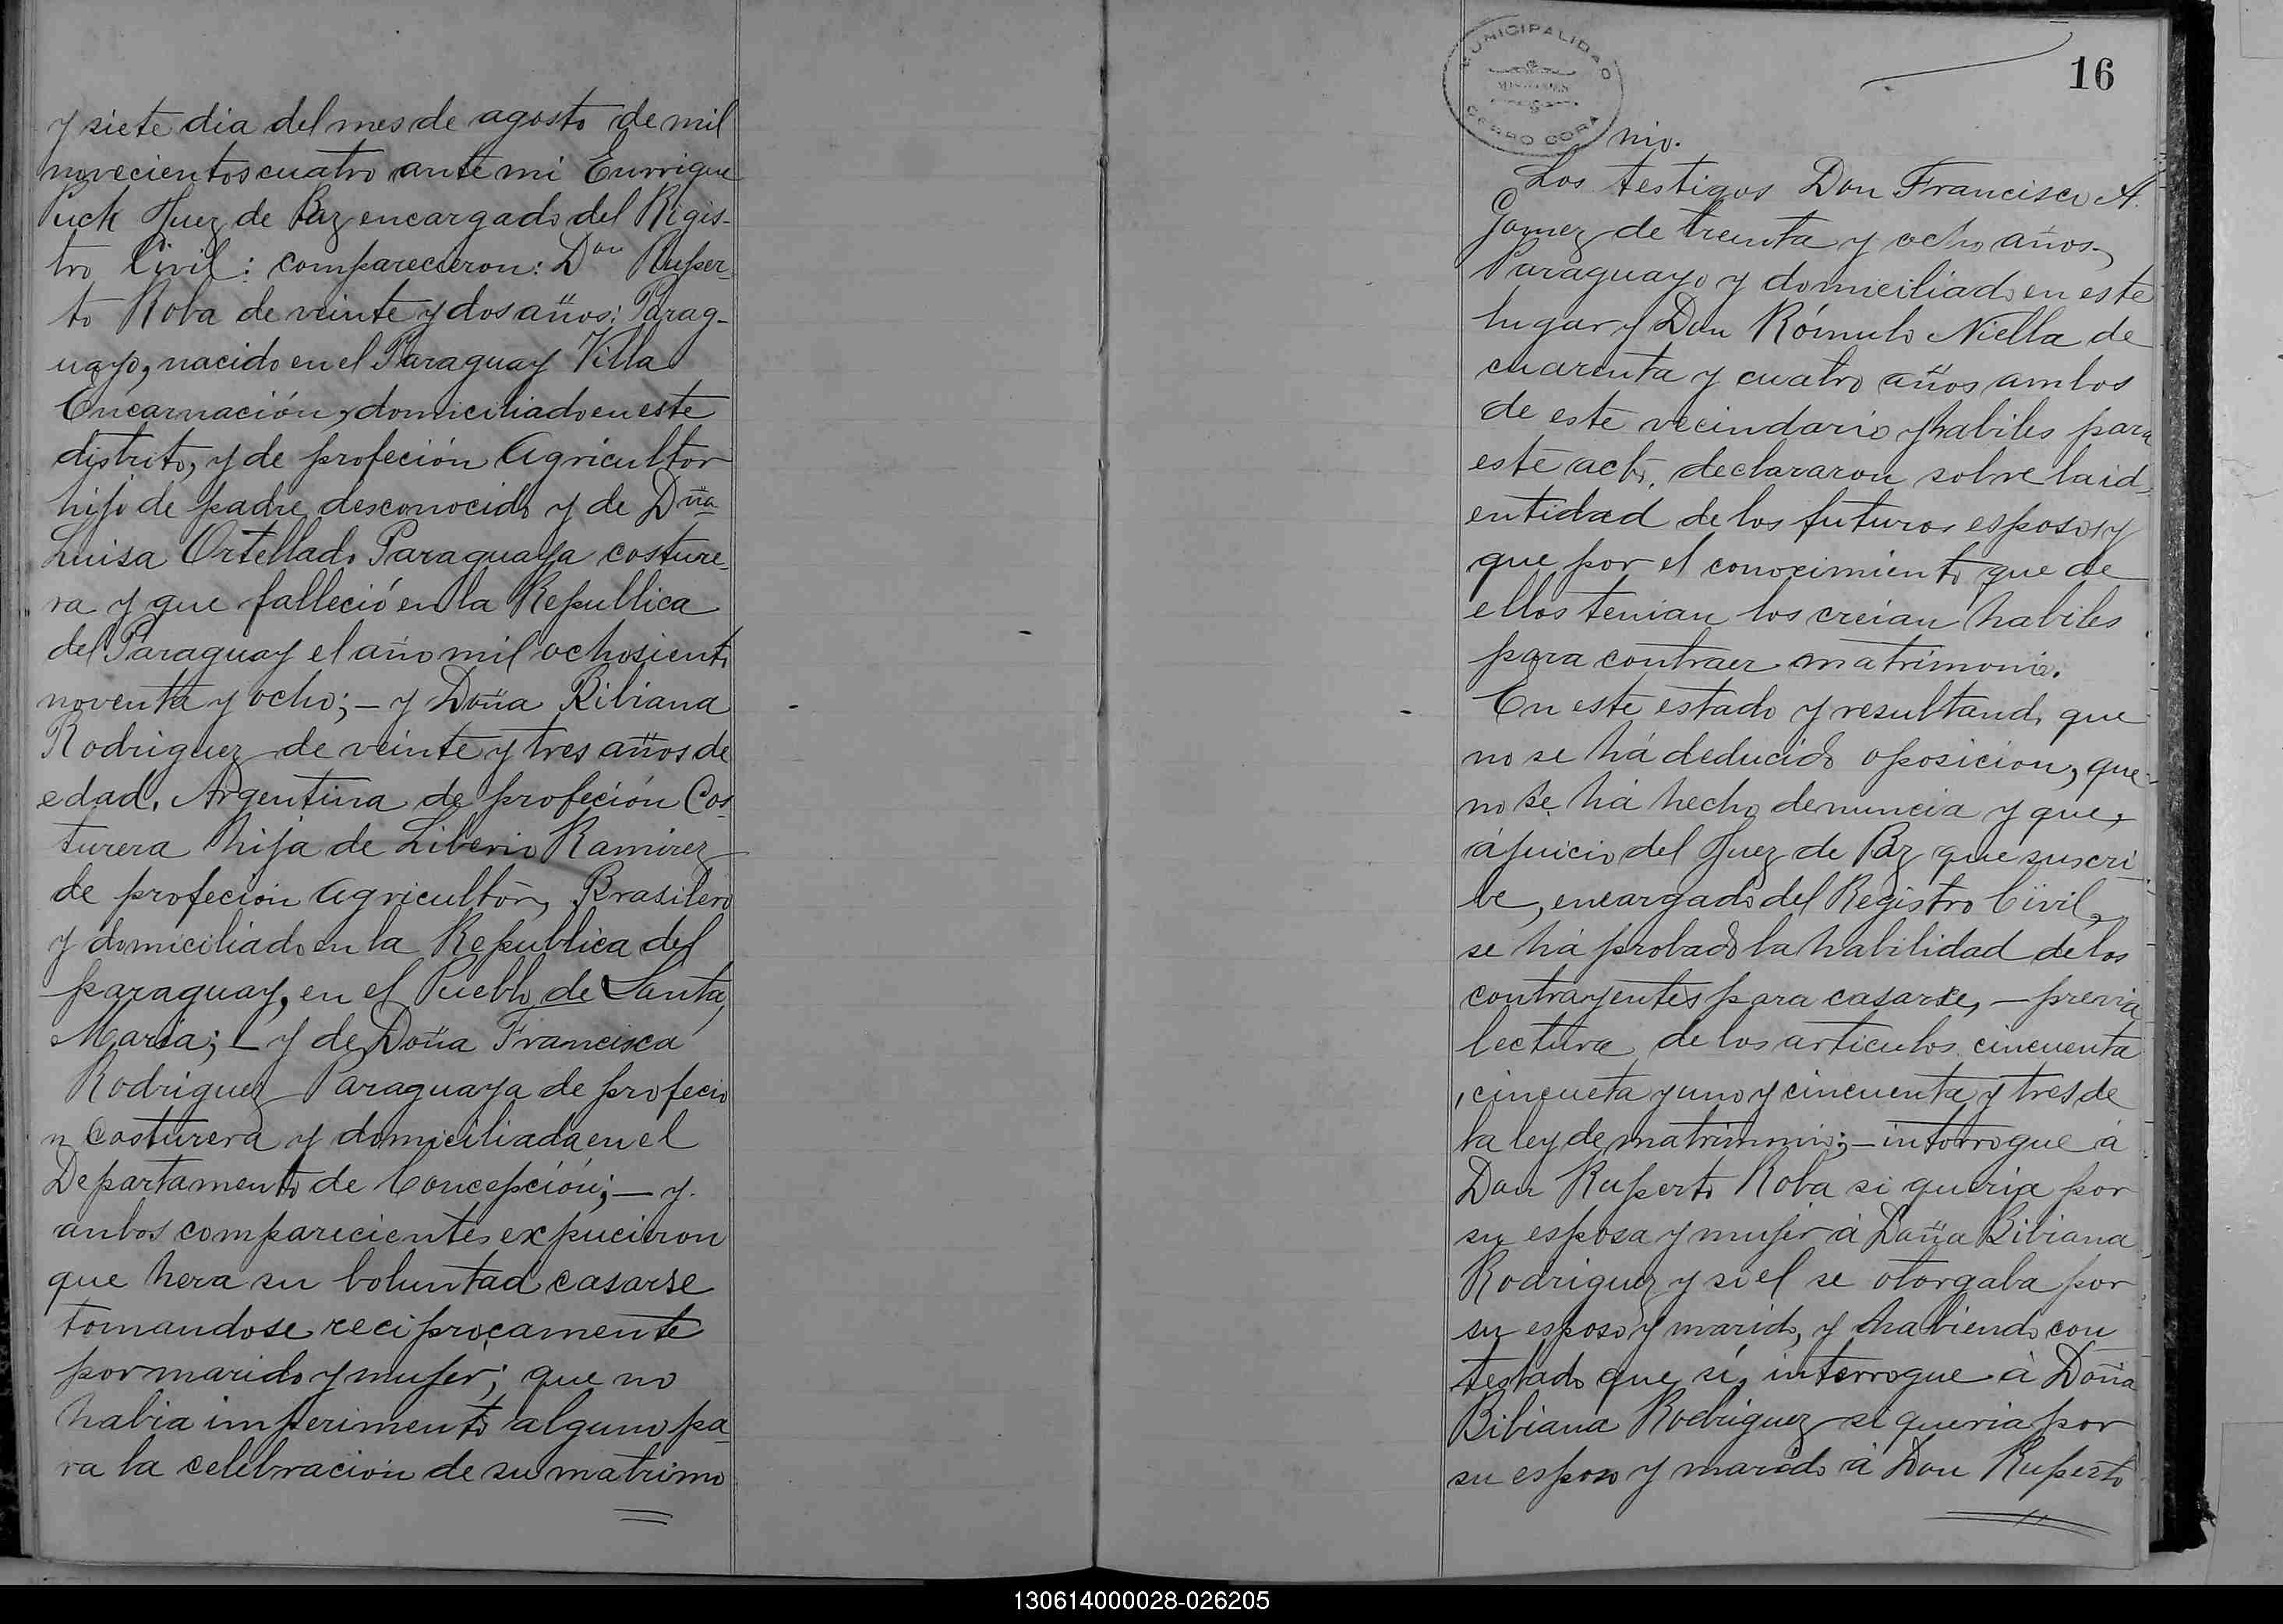 y siete dia del mes de agosto de mil
novecientos cuatro ante mi Enrrique
Puck Juez de Paz encargado del Rigis-
tro Civil: comparecieron: Don Ruper-
to Roba de veinte y dos años: Parag-
uayo, nacido en el Paraguay Villa
Encarnación, domiciliado en este
distrito, y de profeción Agricultor
hijo de padre desconocido y de Dña
Luisa Ortellado Paraguaya costure-
ra y que falleció en la Republica
del Paraguay el año mil ochosiento
noventa y ocho; – y Doña Bibiana
Rodriguez de veinte y tres años de
edad. Argentina de profeción Cos-
turera hija de Liberio Ramirez
de profeción agricultor, Brasilero
y domiciliado en la Republica del
paraguay, en el Pueblo de Santa
Maria; – y de Doña Francisca
Rodriguez Paraguaya de profecio
n Costurera y domiciliada en el
Departamento de Concepción; – y.
anbos comparecientes expucieron
que hera su boluntad casarse
tomandose reciprocamente
por marido y mujer; que no
habia imperimento alguno pa-
ra la celebracion de su matrimo
MUNICIPALIDAD
MISIONES
CERRO CORA
16
nio.
Los testigos Don Francisco A.
Gomez de treinta y ocho años,
Paraguayo y domiciliado en este
lugar y Don Rómulo Niella de
cuarenta y cuatro años ambos
de este vecindario y habiles para
este acto, declararon sobre la id-
entidad de los futuros esposos y
que por el conocimiento que de
ellos tenian los creian habiles
para contraer matrimonio.
En este estado y resultando que
no se há deducido oposicion, que
no se há hecho denuncia y que,
á juicio del Juez de Paz que suscri-
be, encargado del Registro Civil,
se há probado la habilidad de los
contrayentes para casarse, – previa
lectura de los articulos cincuenta
, cincueta y uno y cincuenta y tres de
la ley de matrimonio; – intorrogue á
Don Ruperto Roba si queria por
su esposa y mujer á Doña Bibiana
Rodriguez y si el se otorgaba por
su esposo y marido, y habiendo con
testado que sí, interrogue á Doña
Bibiana Rodriguez si queria por
su esposo y marido á Don Ruperto
130614000028-026205